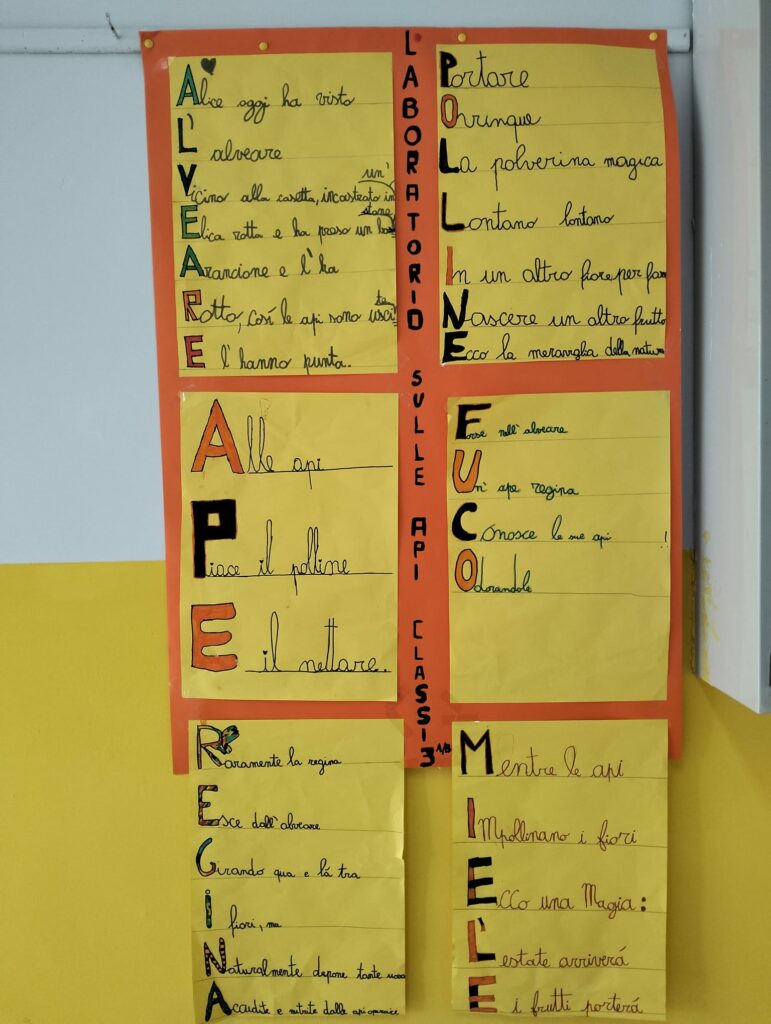 Alice oggi ha visto
L' alveare
un'
Vicino alla casetta, incastrato in
stone
Elica rotta e ha preso un
Arancione e l'ha
ten
Rotto, Così le api sono usci
E l'hanno punta.
LABORATORIO SULLE API CLASSI 3 A/B
Portare
Ovunque
La polverina magica
Lontano lontano
In un altro fiore, per far
Nascere un altro frutto
Ecco la meraviglia della natura
Alle api
Piace il polline
E il nettare.
Forse nell'alveare
Un' ape regina
Conosce le sue api !
Odorandole
Raramente la regina
Esce dall'alveare
Girando qua e lá tra
i fiori, ma
Naturalmente depone tante uova
Accudite e nutrite dalle api operaie
Mentre le api
IMpollinano i fiori
Ecco una Magia:
L'estate arriverá
E i frutti porterá